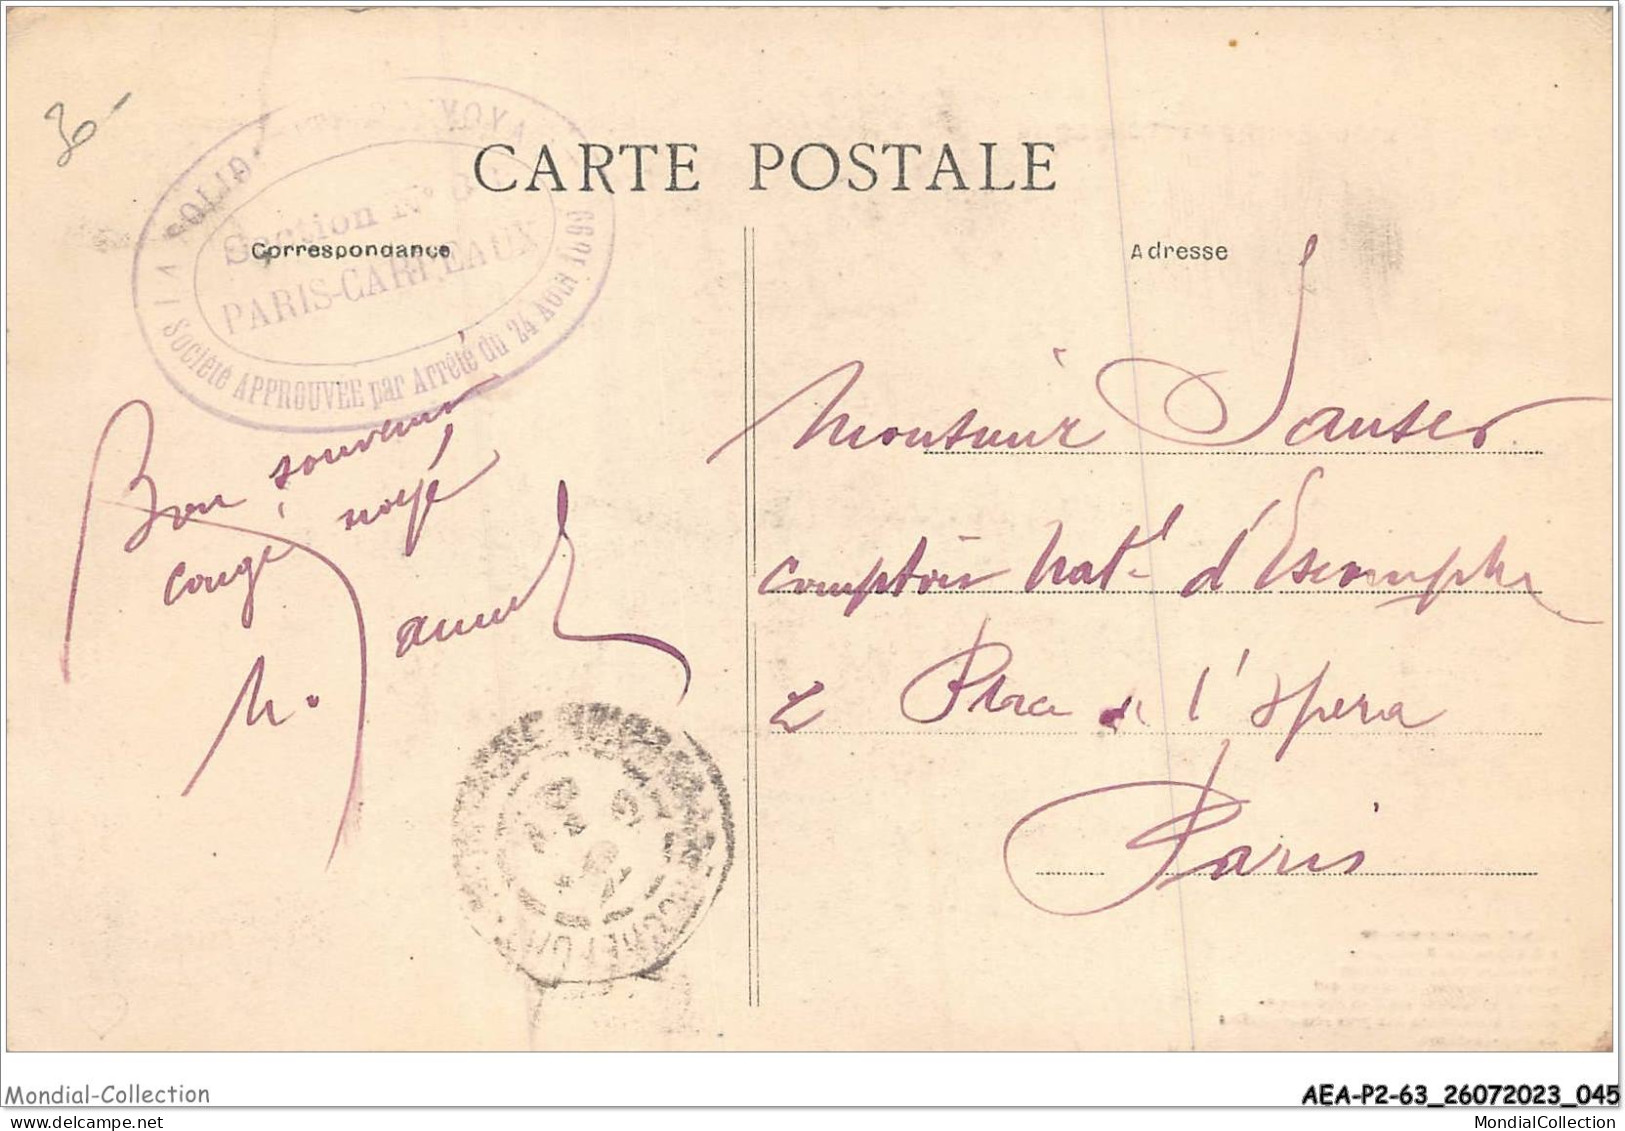 30-
CARTE POSTALE
LA SOLID
VOYA
Section N°
PARIS-CARPEAUX
Société APPROUVÉE par Arrêté du 24 Août 1899
Correspondance
Adresse
Bon souvenir
congé
M.
Monsieur Sauter
Comptoir Natl d'Escompte
2 Place de l'Opera
Paris
ROCHEFORT
Mondial-Collection
AEA-P2-63_26072023_045
MondialCollection